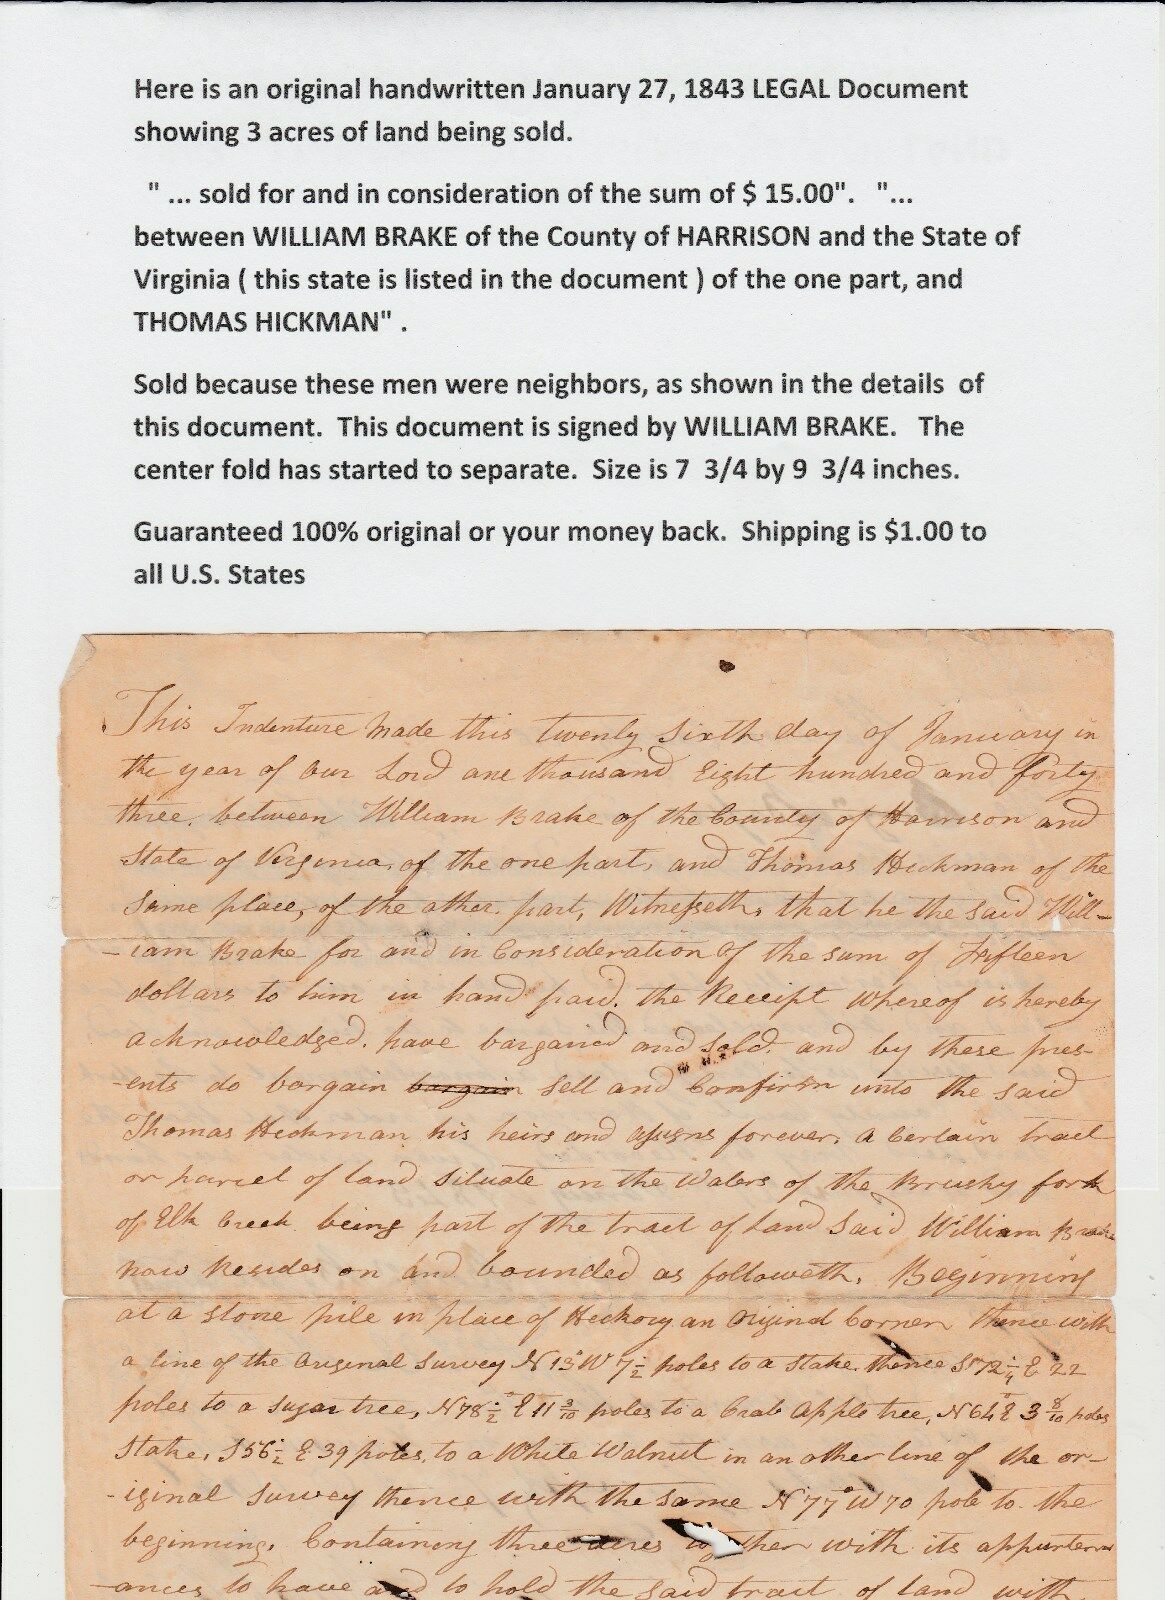 Here is an original handwritten January 27, 1843 LEGAL Document
showing 3 acres of land being sold.
" ... sold for and in consideration of the sum of $ 15.00". "...
between WILLIAM BRAKE of the County of HARRISON and the State of
Virginia ( this state is listed in the document ) of the one part, and
THOMAS HICKMAN" .
Sold because these men were neighbors, as shown in the details of
this document. This document is signed by WILLIAM BRAKE. The
center fold has started to separate. Size is 7 3/4 by 9 3/4 inches.
Guaranteed 100% original or your money back. Shipping is $1.00 to
all U.S. States
This Indenture Made this twenty Sixth day of January in
the year of our Lord one thousand Eight hundred and forty
three. between William Brake of the County of Harrison and
State of Virginia, of the one part, and Thomas Hickman of the
Same place, of the other part, Witnesseth, that he the Said Will-
-iam Brake for and in Consideration of the sum of Fifteen
dollars to him in hand paid. the Receipt whereof is hereby
acknowledged. have bargained and Sold. and by these pres-
-ents do bargain bargain Sell and Confirm unto the Said
Thomas Heckman his heirs and assigns forever. a Certain tract
or parcel of land Situate on the Waters of the Brushy fork
of Elk Creek being part of the tract of Land Said William Brake
now Resides on and bounded as followeth. Beginning
at a stone pile in place of Heckory an Original Corner thence with
a line of the Original Survey N 13° W 7 1/2 poles to a Stake. thence S 72 1/4 E 22
poles to a Sugar tree, N 78 1/2° E 11 3/10 poles to a Crab Apple tree, N 64° E 3 8/10 poles
Stake, S 56 1/2 E 39 poles, to a White Walnut in an other line of the or-
-iginal Survey thence with the Same N 77° W 70 pole to the
beginning. Containing three acres together with its appurten
-ances to have and to hold the Said tract of land with